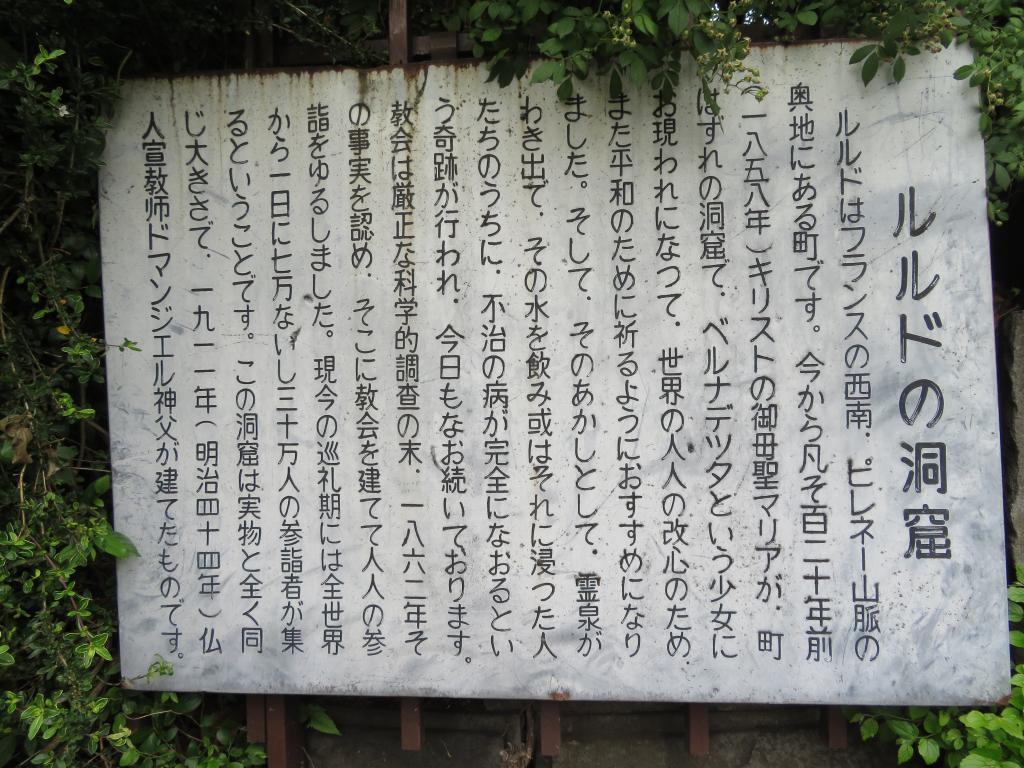 ルルドの洞窟
ルルドはフランスの西南．ピレネー山脈の
奥地にある町です。今から凡そ百二十年前
一八五八年）キリストの御母聖マリアが．町
はずれの洞窟で．ベルナデツタという少女に
お現われになつて．世界の人人の改心のため
また平和のために祈るようにおすすめになり
ました。そして．そのあかしとして．霊泉が
わき出て．その水を飲み或はそれに浸つた人
たちのうちに．不治の病が完全になおるとい
う奇跡が行われ．今日もなお続いております。
教会は厳正な科学的調査の末．一八六二年そ
の事実を認め．そこに教会を建てて人人の参
詣をゆるしました。現今の巡礼期には全世界
から一日に七万ないし三十万人の参詣者が集
るということです。この洞窟は実物と全く同
じ大きさで．一九一一年（明治四十四年）仏
人宣教師ドマンジエル神父が建てたものです。